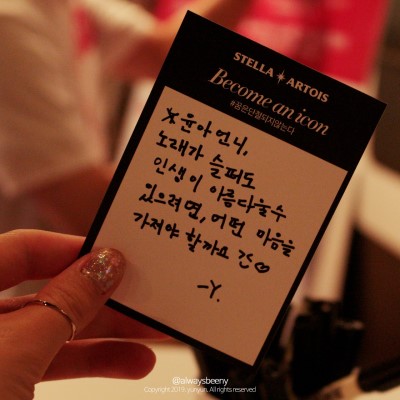 STELLA ARTOIS
Become an icon
#꿈은단절되지않는다
※윤아언니,
노래가 슬퍼도
인생이 아름다울수
있으려면, 어떤 마음을
가져야 할까요
-Y.
@alwaysbeeny
Copyright 2019. yunyun. All rights reserved